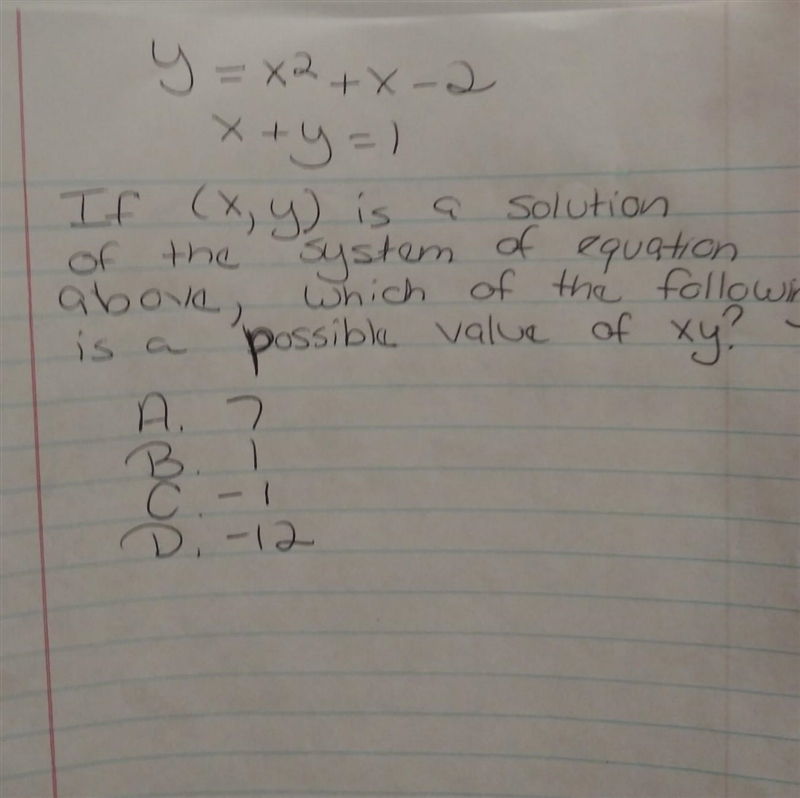 y = x² + x - 2
x + y = 1
If (x, y) is a solution
of the system of equation
above, which of the followin
is a possible value of xy?
A. 7
B. 1
C. -1
D. -12